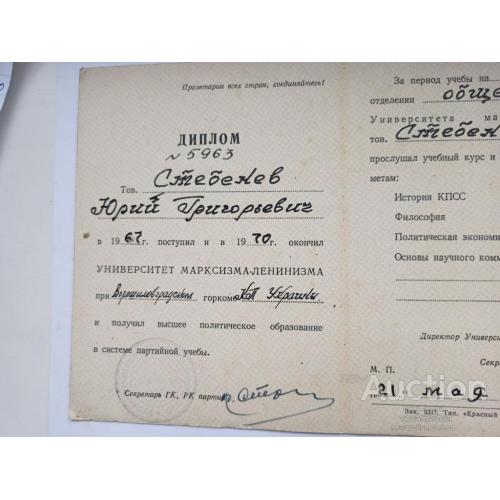 Пролетарии всех стран, соединяйтесь!
ДИПЛОМ
№ 5963
Тов. Стебенев
Юрий Григорьевич
в 1967 г. поступил и в 1970 г. окончил
УНИВЕРСИТЕТ МАРКСИЗМА-ЛЕНИНИЗМА
при Ворошиловградском горкоме КП Украины
и получил высшее политическое образование
в системе партийной учебы.
Секретарь ГК, РК партии
За период учебы на
отделении обще
Университета ма
тов. Стебен
прослушал учебный курс и
метам:
История КПСС
Философия
Политическая эконом
Основы научного комм
Директор Универси
Секре
М. П.
21 мая
Зак. 5317, Тип. «Красный
Auction